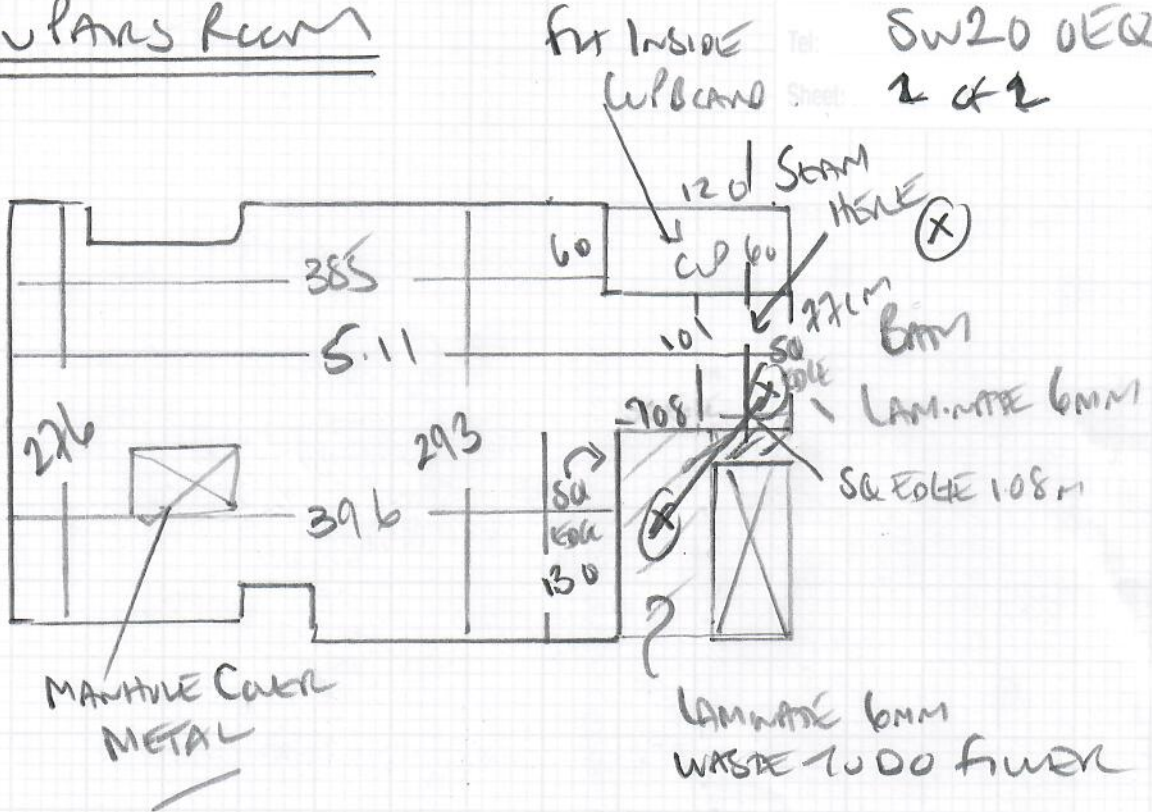 UPAIRS ROOM
FIT INSIDE
CUPBOARD
Tel:
SW20 0EQ
Sheet:
1 of 1
120
SEAM
HERE
X
385
60
CUP 60
77CM
BATH
5.11
101
SQ
EDGE
X
LAMINATE 6MM
108
276
293
SQ
EDGE
130
SQ EDGE 1.08M
396
X
?
MANHOLE COVER
METAL
LAMINATE 6MM
WASTE TO DO FILLER